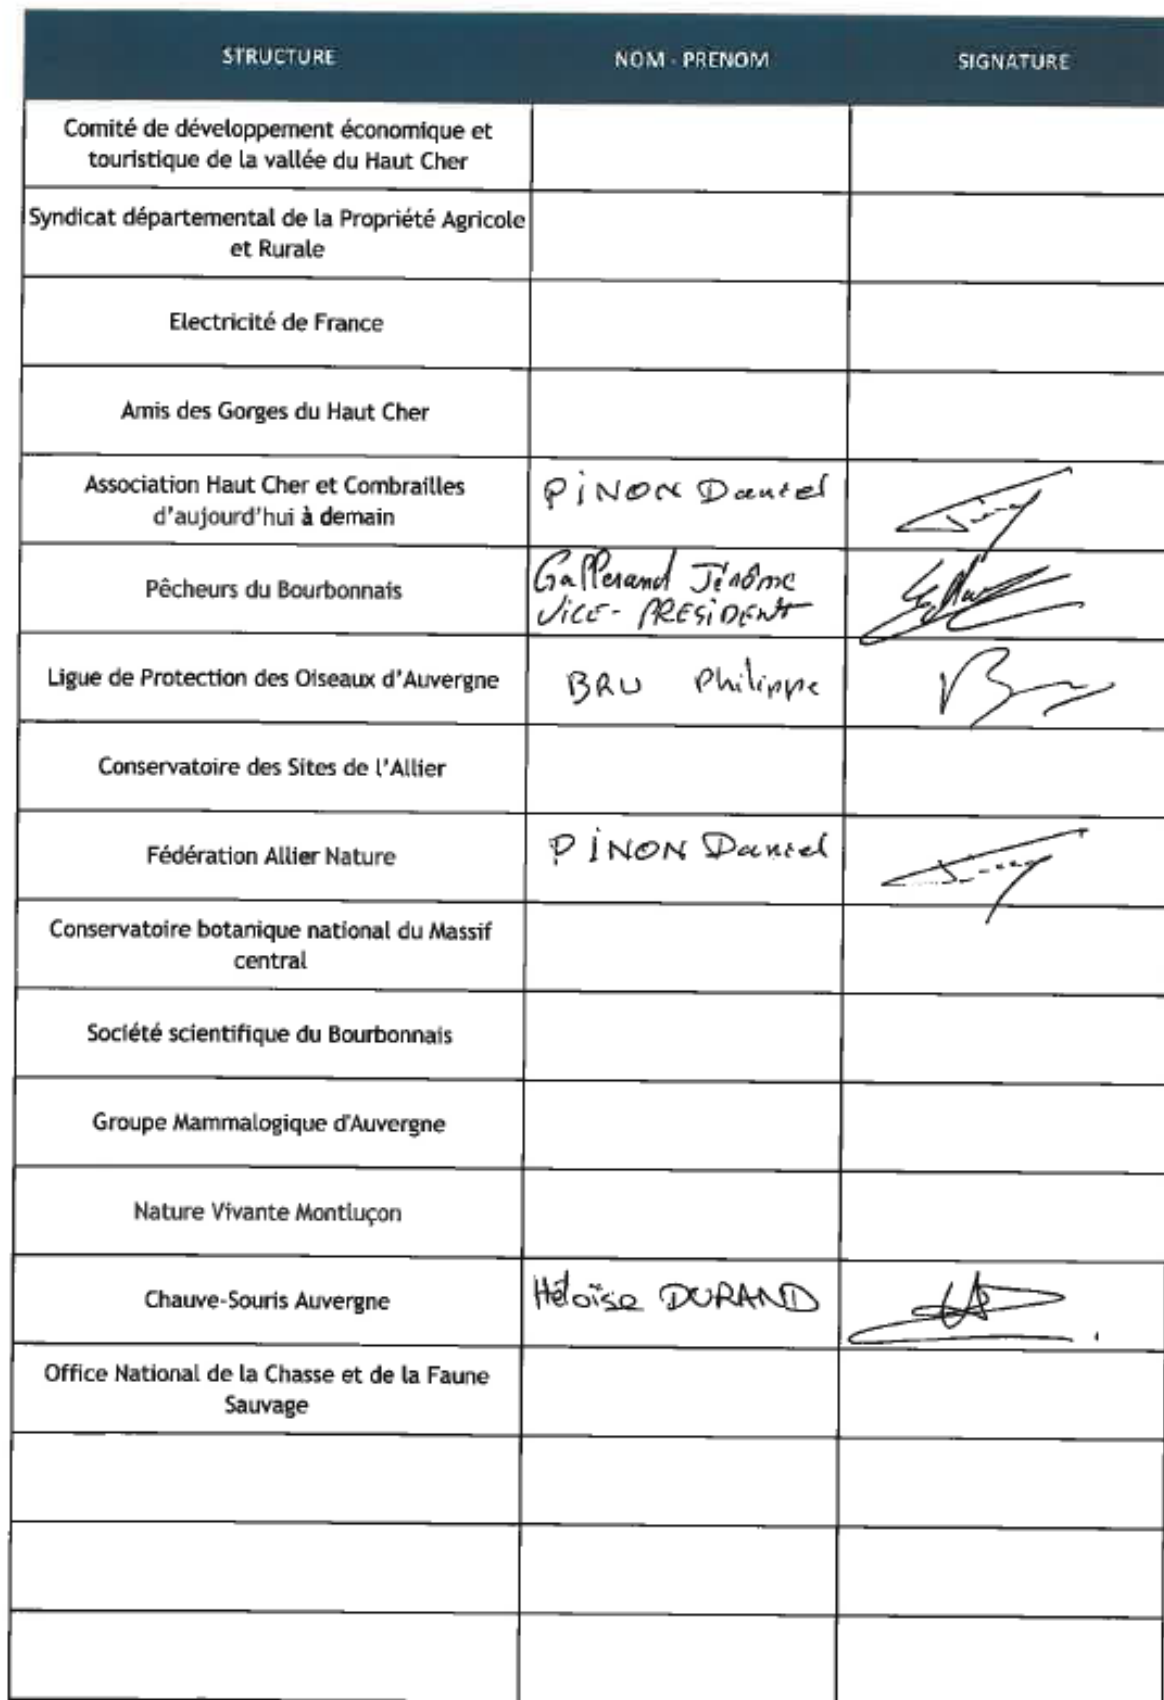 STRUCTURE NOM - PRENOM SIGNATURE
Comité de développement économique et
touristique de la vallée du Haut Cher
Syndicat départemental de la Propriété Agricole
et Rurale
Electricité de France
Amis des Gorges du Haut Cher
Association Haut Cher et Combrailles
d'aujourd'hui à demain
PINON Daniel
Pêcheurs du Bourbonnais
Jérôme
VICE-PRESIDENT
Ligue de Protection des Oiseaux d'Auvergne
BRU Philippe
Conservatoire des Sites de l'Allier
Fédération Allier Nature
PINON Daniel
Conservatoire botanique national du Massif
central
Société scientifique du Bourbonnais
Groupe Mammalogique d'Auvergne
Nature Vivante Montluçon
Chauve-Souris Auvergne
Héloïse DURAND
Office National de la Chasse et de la Faune
Sauvage